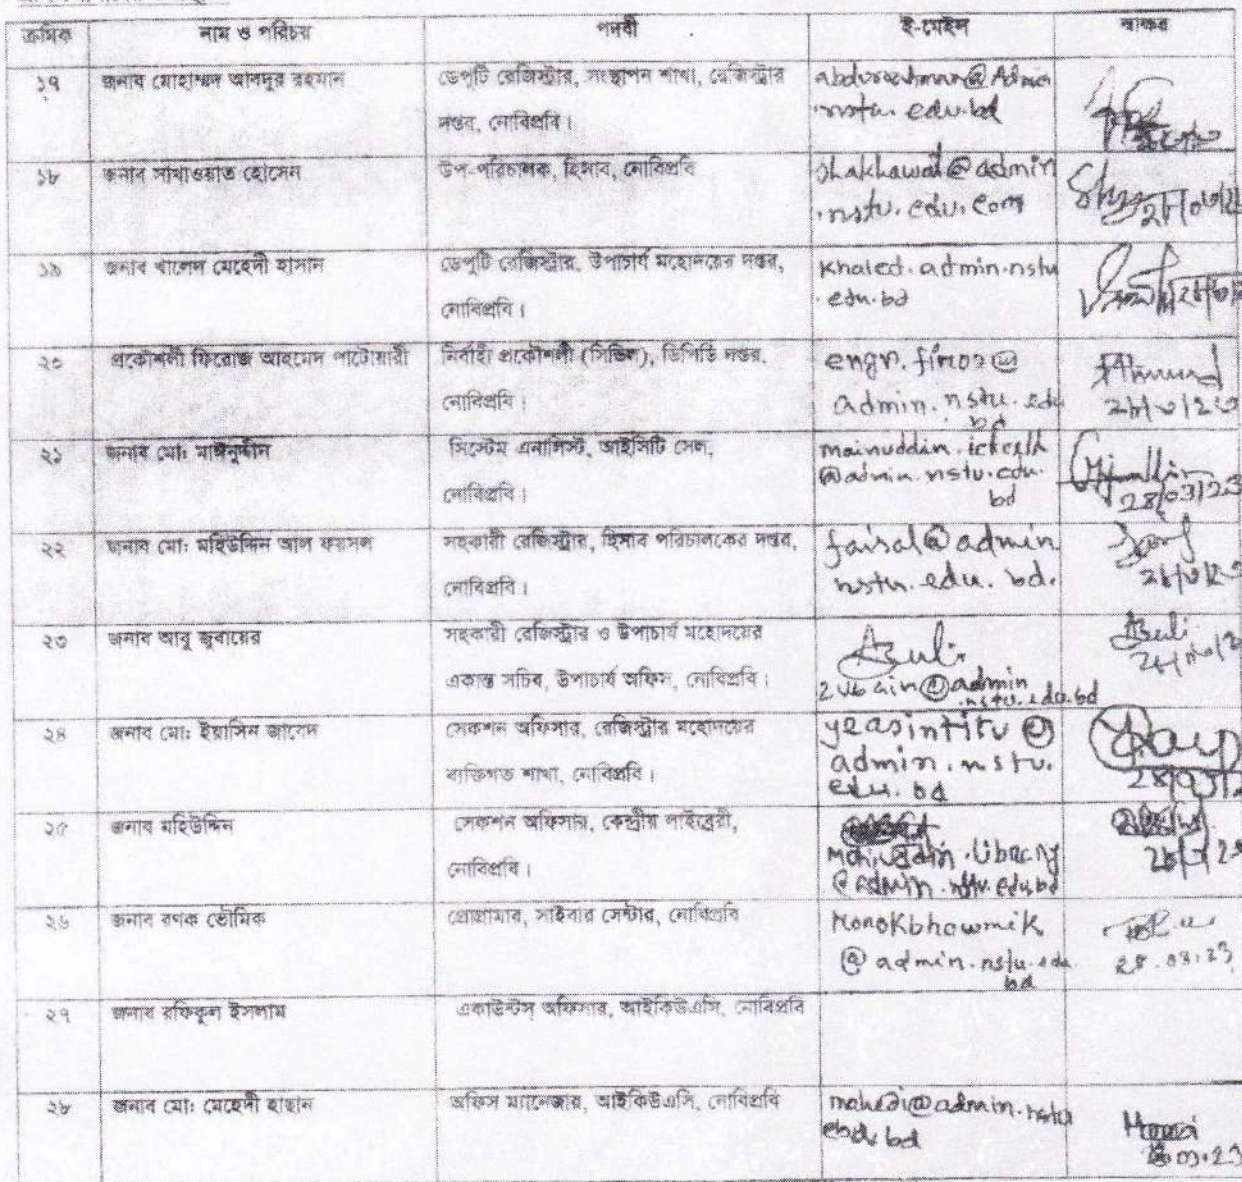 ক্রমিক নাম ও পরিচয় পদবী ই-মেইল স্বাক্ষর
১৭ জনাব মোহাম্মদ আবদুর রহমান ডেপুটি রেজিস্ট্রার, সংস্থাপন শাখা, রেজিস্ট্রার
দপ্তর, নোবিপ্রবি।
১৮ জনাব সাখাওয়াত হোসেন উপ-পরিচালক, হিসাব, নোবিপ্রবি shakhawat@admin
.nstu.edu.com
১৯ জনাব খালেদ মেহেদী হাসান ডেপুটি রেজিস্ট্রার, উপাচার্য মহোদয়ের দপ্তর, khaled.admin.nstu
নোবিপ্রবি। .edu.bd
২০ প্রকৌশলী ফিরোজ আহমেদ পাটোয়ারী নির্বাহী প্রকৌশলী (সিভিল), ডিপিডি দপ্তর, engr.firoz@
নোবিপ্রবি। admin.nstu.edu
bd
২১ জনাব মো: মাঈনুদ্দীন সিস্টেম এনালিস্ট, আইসিটি সেল,
নোবিপ্রবি। @admin.nstu.edu.
bd 28/03/23
২২ জনাব মো: মহিউদ্দিন আল ফয়সল সহকারী রেজিস্ট্রার, হিসাব পরিচালকের দপ্তর, faisal@admin.
নোবিপ্রবি। nstu.edu.bd.
২৩ জনাব আবু জুবায়ের সহকারী রেজিস্ট্রার ও উপাচার্য মহোদয়ের
একান্ত সচিব, উপাচার্য অফিস, নোবিপ্রবি। zubair@admin
.nstu.edu.bd
২৪ জনাব মো: ইয়াসিন আবেদ সেকশন অফিসার, রেজিস্ট্রার মহোদয়ের yeasintitu@
ব্যক্তিগত শাখা, নোবিপ্রবি। admin.nstu.
edu.bd
২৫ জনাব মহিউদ্দিন সেকশন অফিসার, কেন্দ্রীয় লাইব্রেরী,
নোবিপ্রবি। Mohiuddin.library
@admin.nstu.edu.bd
২৬ জনাব রণক ভৌমিক প্রোগ্রামার, সাইবার সেন্টার, নোবিপ্রবি ronokbhowmik
@admin.nstu.edu. 28.03.23
bd
২৭ জনাব রফিকুল ইসলাম একাউন্টস্ অফিসার, আইকিউএসি, নোবিপ্রবি
২৮ জনাব মো: মেহেদী হাছান অফিস ম্যানেজার, আইকিউএসি, নোবিপ্রবি mahedi@admin.nstu